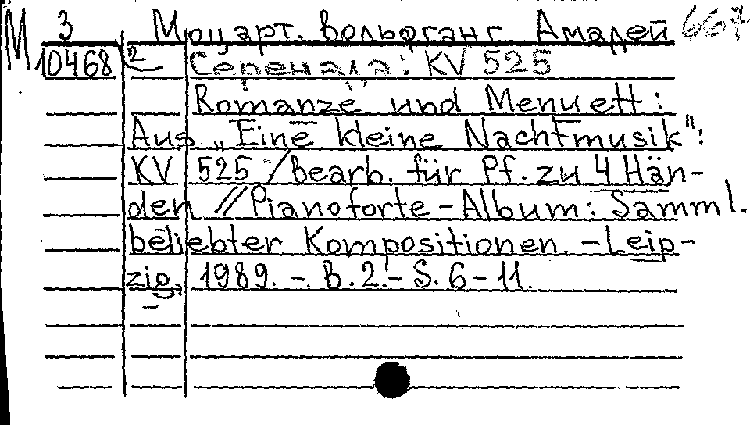 М 3 Моцарт. Вольфганг Амадей 667
10468 2 Серенада: KV 525
Romanze und Menuett:
Aus „Eine kleine Nachtmusik":
KV 525 / bearb. für Pf. zu 4 Hän-
den // Pianoforte-Album: Samml.
beliebter Kompositionen. - Leip-
zig, 1989. - B. 2. - S. 6-11.